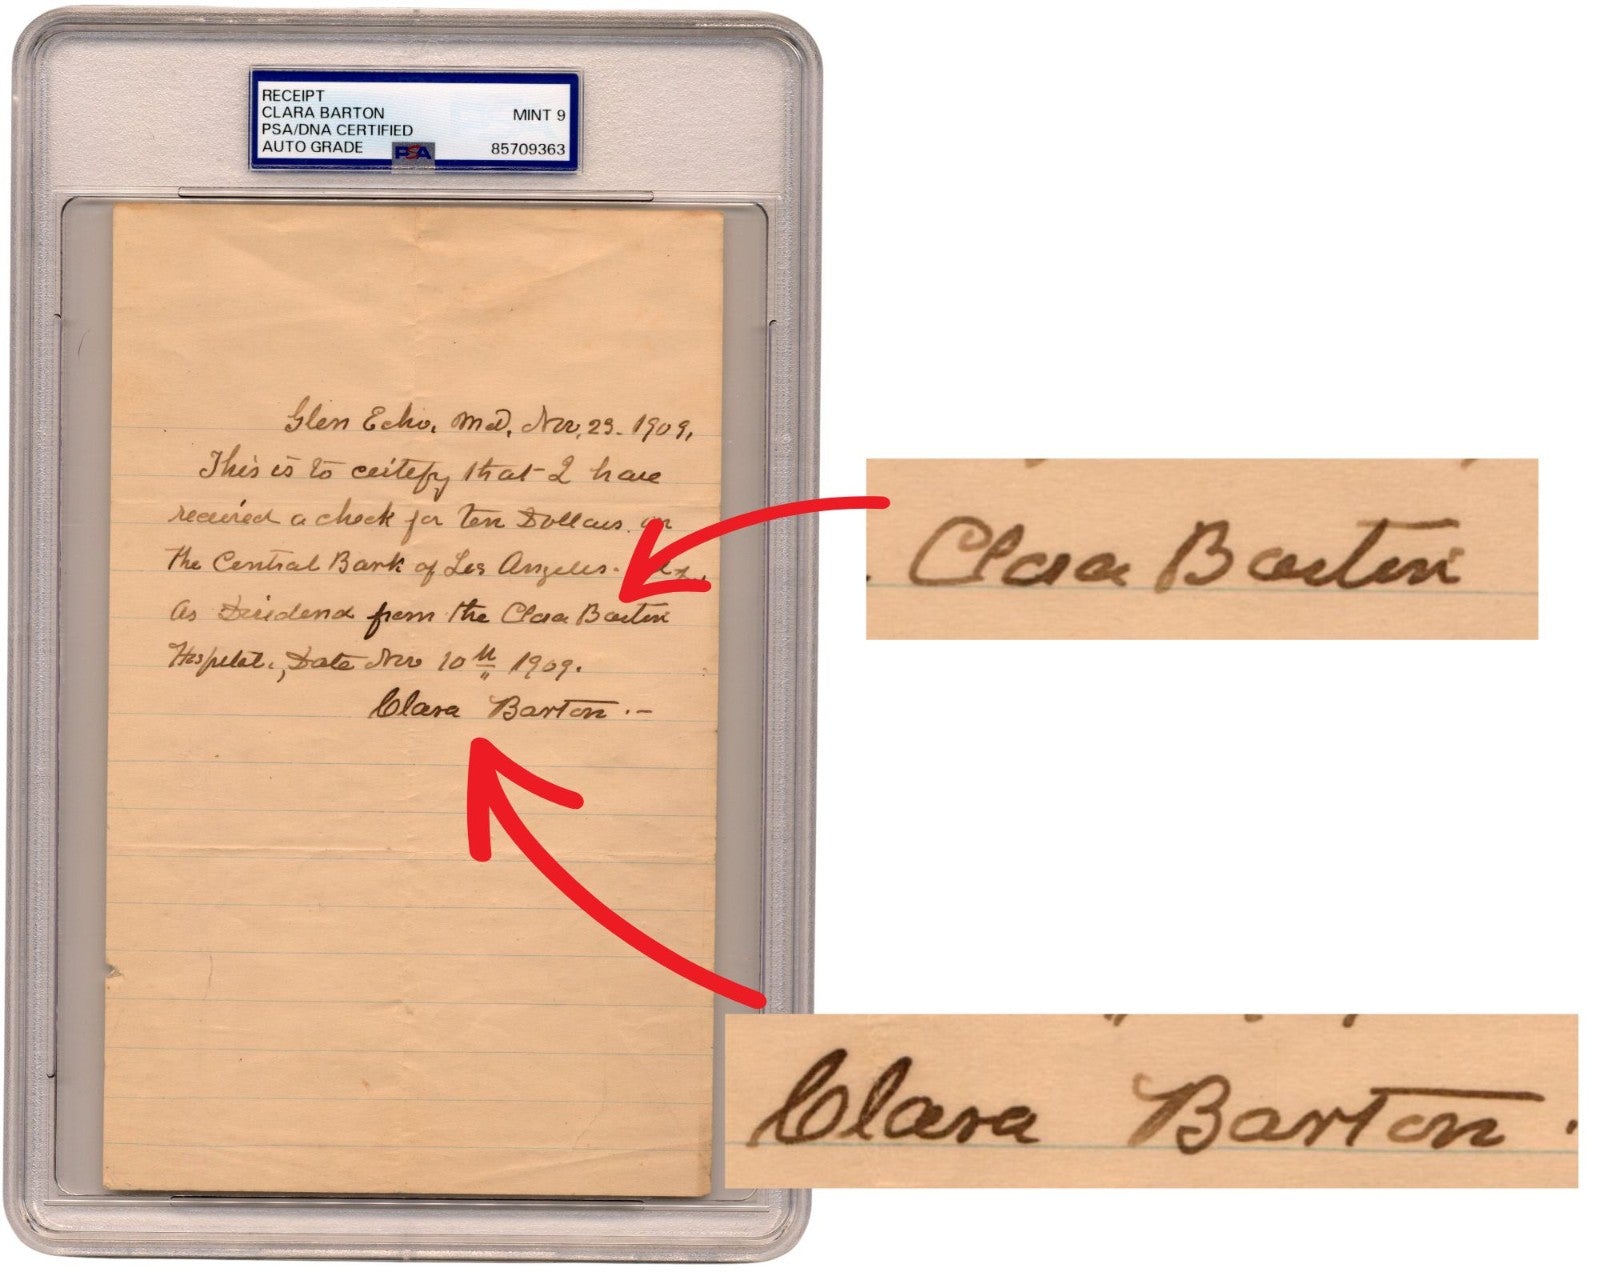 RECEIPT
CLARA BARTON MINT 9
PSA/DNA CERTIFIED
AUTO GRADE PSA 85709363
Glen Echo, Md, Nov, 23. 1909,
This is to certify that I have
received a check for ten Dollars, on
the Central Bank of Los Angeles.
As Dividend from the Clara Barton
Hospital, Date Nov 10th 1909.
Clara Barton . –
Clara Barton
Clara Barton .